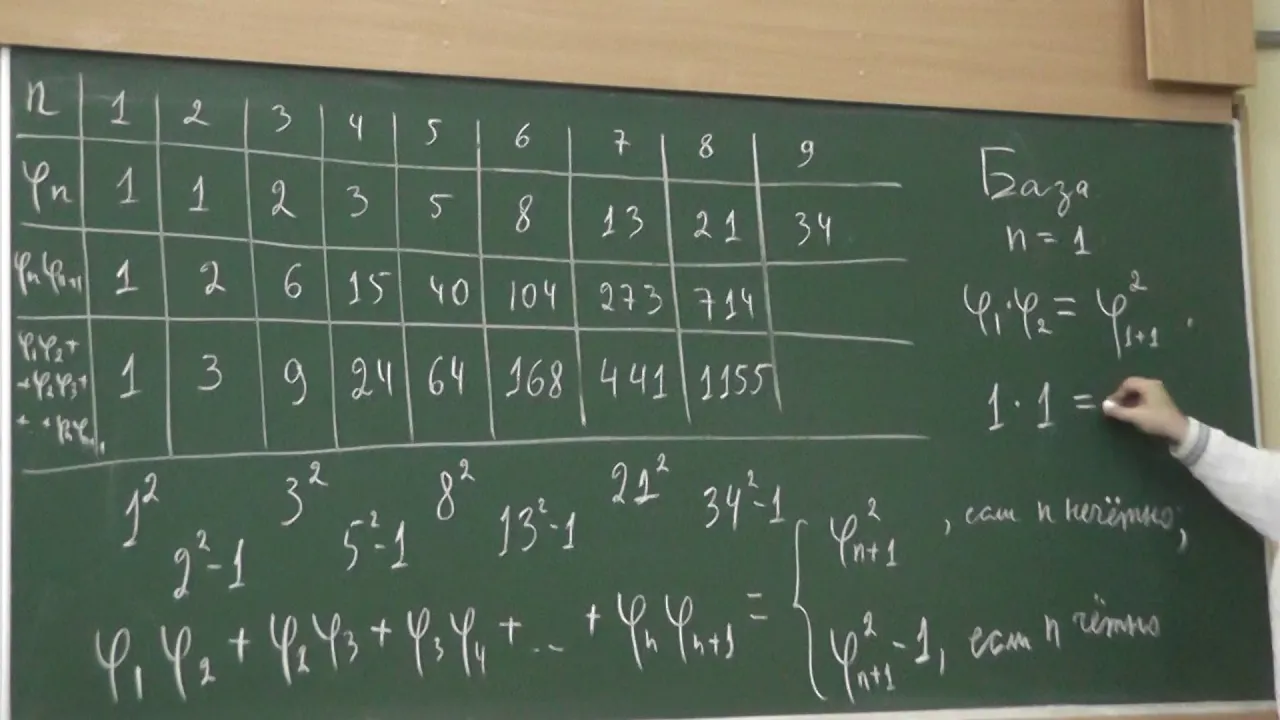 n 1 2 3 4 5 6 7 8 9
φn 1 1 2 3 5 8 13 21 34
φnφn+1 1 2 6 15 40 104 273 714
φ1φ2+
+φ2φ3+
1 3 9 24 64 168 441 1155
1² 2²-1 3² 5²-1 8² 13²-1 21² 34²-1
φ1φ2 + φ2φ3 + φ3φ4 + ... + φnφn+1 =
φ²n+1, если n нечётно;
φ²n+1 - 1, если n чётно
База
n = 1
φ1·φ2 = φ²1+1.
1·1 =